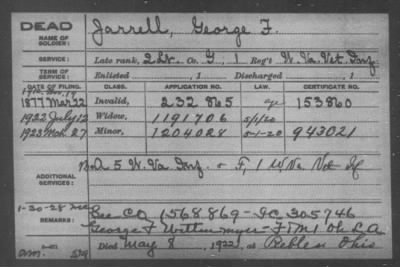 DEAD
NAME OF SOLDIER: Jarrell, George F.
SERVICE: Late rank, 2 Lt. Co. G, 1 Reg't W. Va. Vet. Inf.
TERM OF SERVICE: Enlisted , 1 Discharged , 1
DATE OF FILING. CLASS. APPLICATION NO. LAW. CERTIFICATE NO.
1877 Mar 22 Invalid, 232 865 153860
1922 July 12 Widow, 1191706 5/1/20
1923 Mch 27 Minor, 1204028 5-1-20 943021
ADDITIONAL SERVICES: A 5 W. Va Inf. & F, 1 W. Va. Vet. If
1-30-28
REMARKS: See CO 1568869 - IC 305746
George F Wittenmyer - F + M 1 Oh L.A.
Died May 8, 1922, at Peebles Ohio